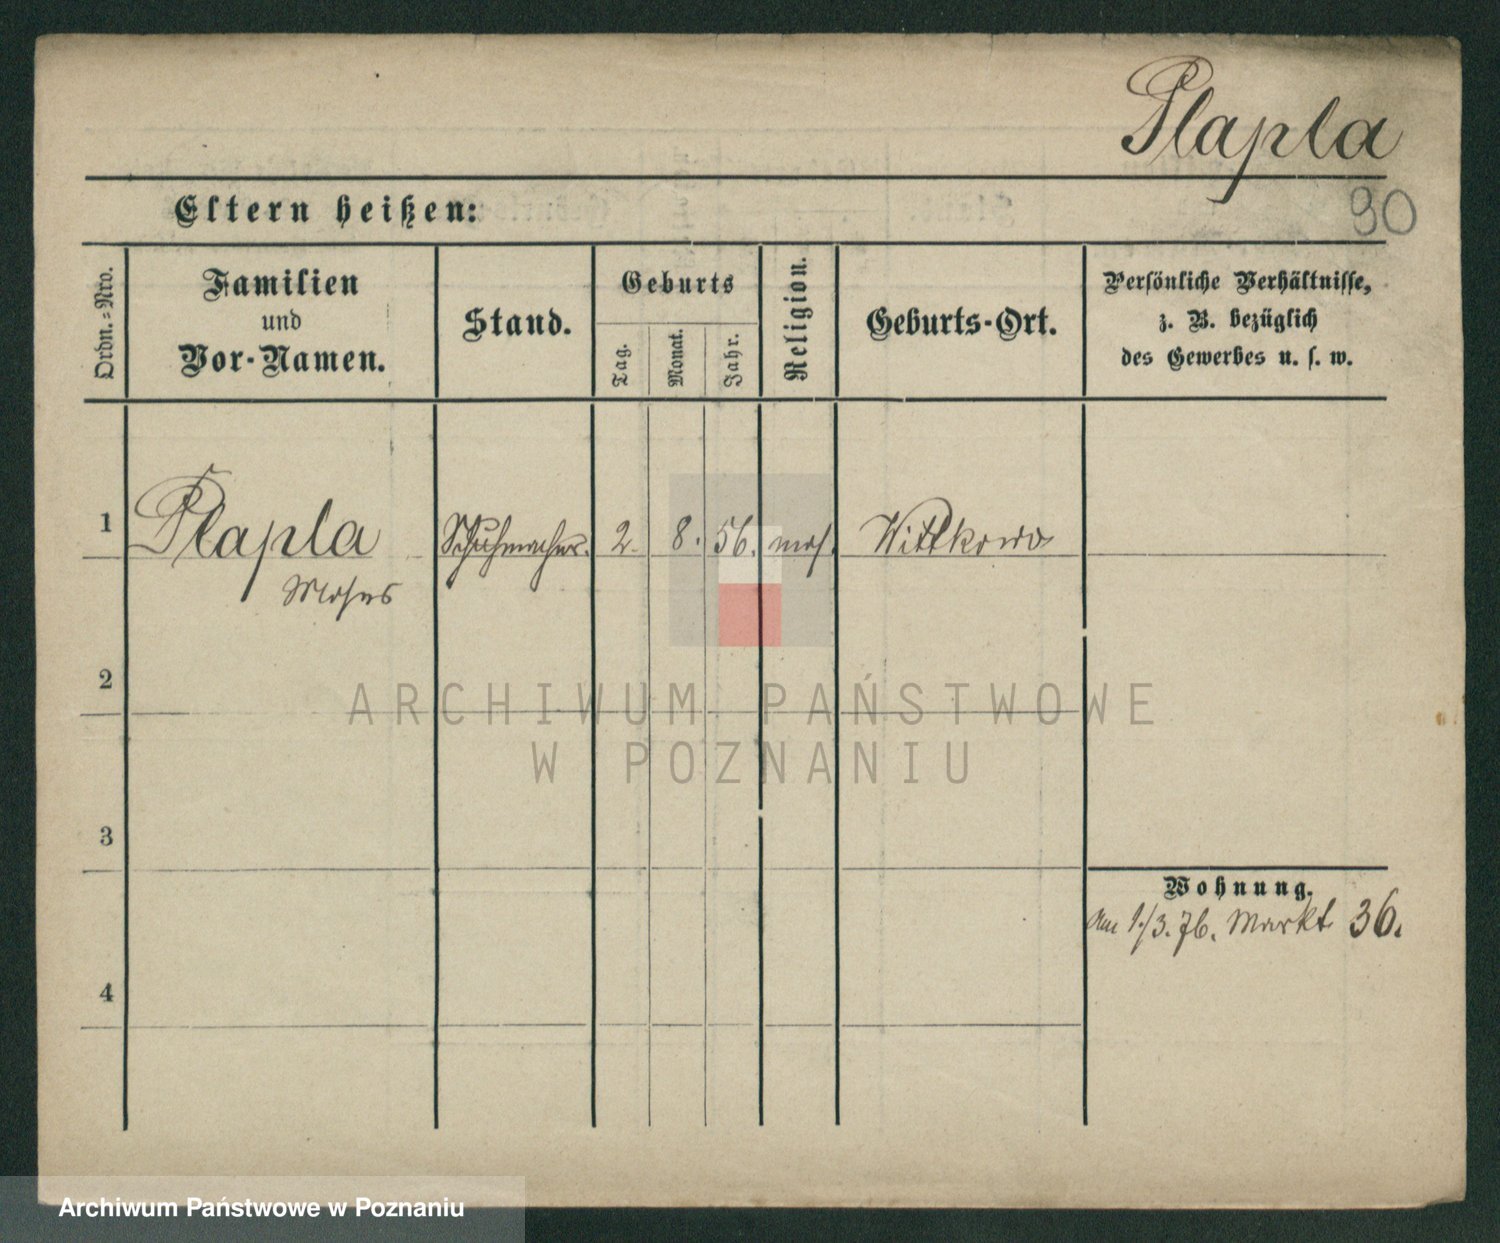 Plapla
90
Eltern heißen:
Ordn.=Nro.
Familien
und
Vor-Namen.
Stand.
Geburts
Tag.
Monat.
Jahr.
Religion.
Geburts-Ort.
Persönliche Verhältnisse,
z. B. bezüglich
des Gewerbes u. s. w.
1 Plapla Schuhmacher. 2. 8. 56. mos. Wittkowo
Moses
2
ARCHIWUM PAŃSTWOWE
W POZNANIU
3
Wohnung.
Am 1./3. 76. Markt 36.
4
Archiwum Państwowe w Poznaniu